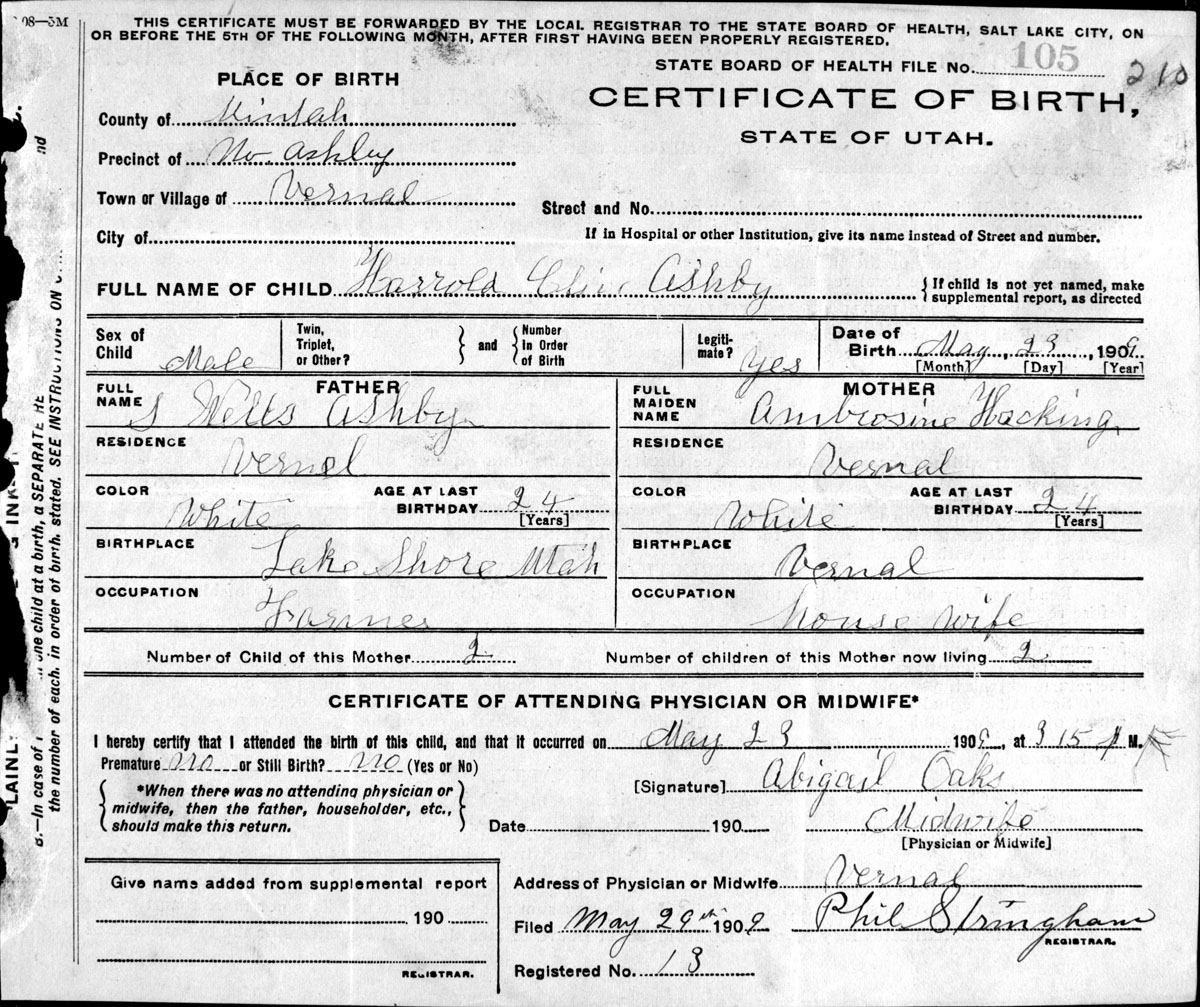 08—5M
THIS CERTIFICATE MUST BE FORWARDED BY THE LOCAL REGISTRAR TO THE STATE BOARD OF HEALTH, SALT LAKE CITY, ON
OR BEFORE THE 5TH OF THE FOLLOWING MONTH, AFTER FIRST HAVING BEEN PROPERLY REGISTERED.
STATE BOARD OF HEALTH FILE No. 105 210
PLACE OF BIRTH
CERTIFICATE OF BIRTH,
STATE OF UTAH.
County of Uintah
Precinct of No. Ashley
Town or Village of Vernal
Street and No.
City of
If in Hospital or other Institution, give its name instead of Street and number.
FULL NAME OF CHILD Harrold Ashby
{ If child is not yet named, make
supplemental report, as directed
Sex of Child Male
Twin, Triplet, or Other? } and { Number In Order of Birth
Legitimate? Yes
Date of Birth May, 23, 1909
[Month] [Day] [Year
FATHER
FULL NAME S Wells Ashby
MOTHER
FULL MAIDEN NAME Ambrosine Hacking
RESIDENCE Vernal
RESIDENCE Vernal
COLOR White AGE AT LAST BIRTHDAY 24 [Years]
COLOR White AGE AT LAST BIRTHDAY 24 [Years]
BIRTHPLACE Lake Shore Utah
BIRTHPLACE Vernal
OCCUPATION Farmer
OCCUPATION House Wife
Number of Child of this Mother 2 Number of children of this Mother now living 2
CERTIFICATE OF ATTENDING PHYSICIAN OR MIDWIFE*
I hereby certify that I attended the birth of this child, and that it occurred on May 23 1909, at 3 15 M.
Premature No or Still Birth? No (Yes or No)
[Signature] Abigail Oaks
{ *When there was no attending physician or
midwife, then the father, householder, etc.,
should make this return. }
Date 190 Midwife
[Physician or Midwife]
Give name added from supplemental report
190
REGISTRAR.
Address of Physician or Midwife Vernal
Filed May 29th 1909 Phil Stringham
REGISTRAR.
Registered No. 13
B.—In case of one child at a birth, a SEPARATE
the number of each, in order of birth, stated. SEE INSTRUCTIONS ON